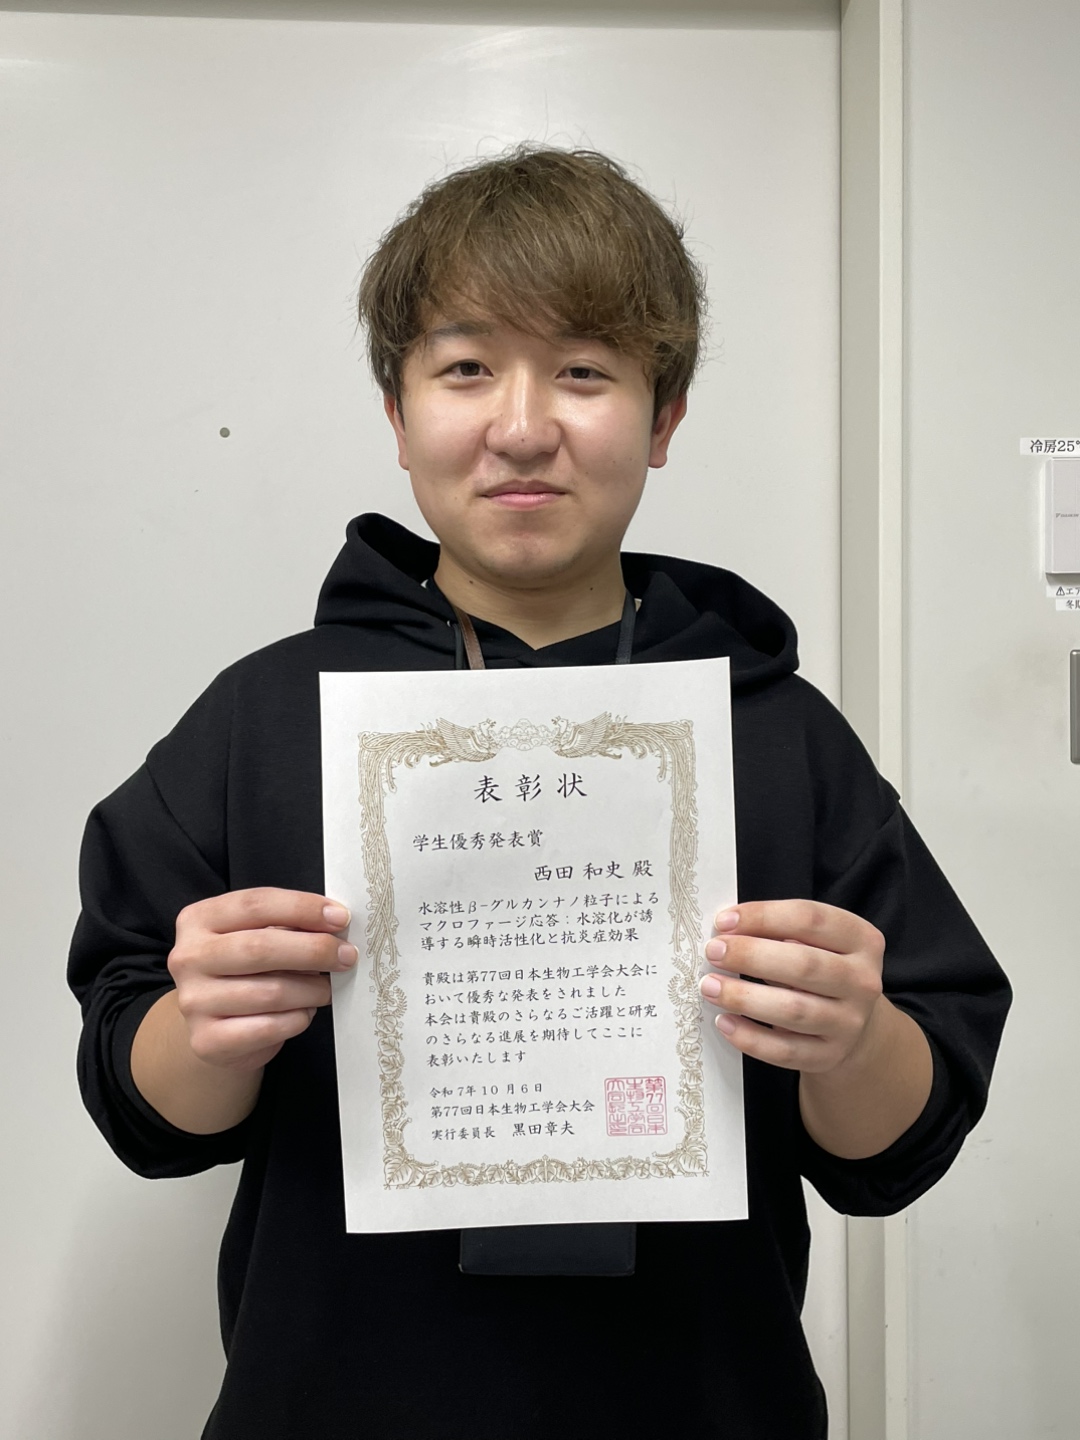 冷房25°
表彰状
学生優秀発表賞
西田 和史 殿
水溶性β-グルカンナノ粒子による
マクロファージ応答：水溶化が誘
導する瞬時活性化と抗炎症効果
貴殿は第77回日本生物工学会大会に
おいて優秀な発表をされました
本会は貴殿のさらなるご活躍と研究
のさらなる進展を期待してここに
表彰いたします
令和7年10月6日
第77回日本生物工学会大会
実行委員長 黒田章夫